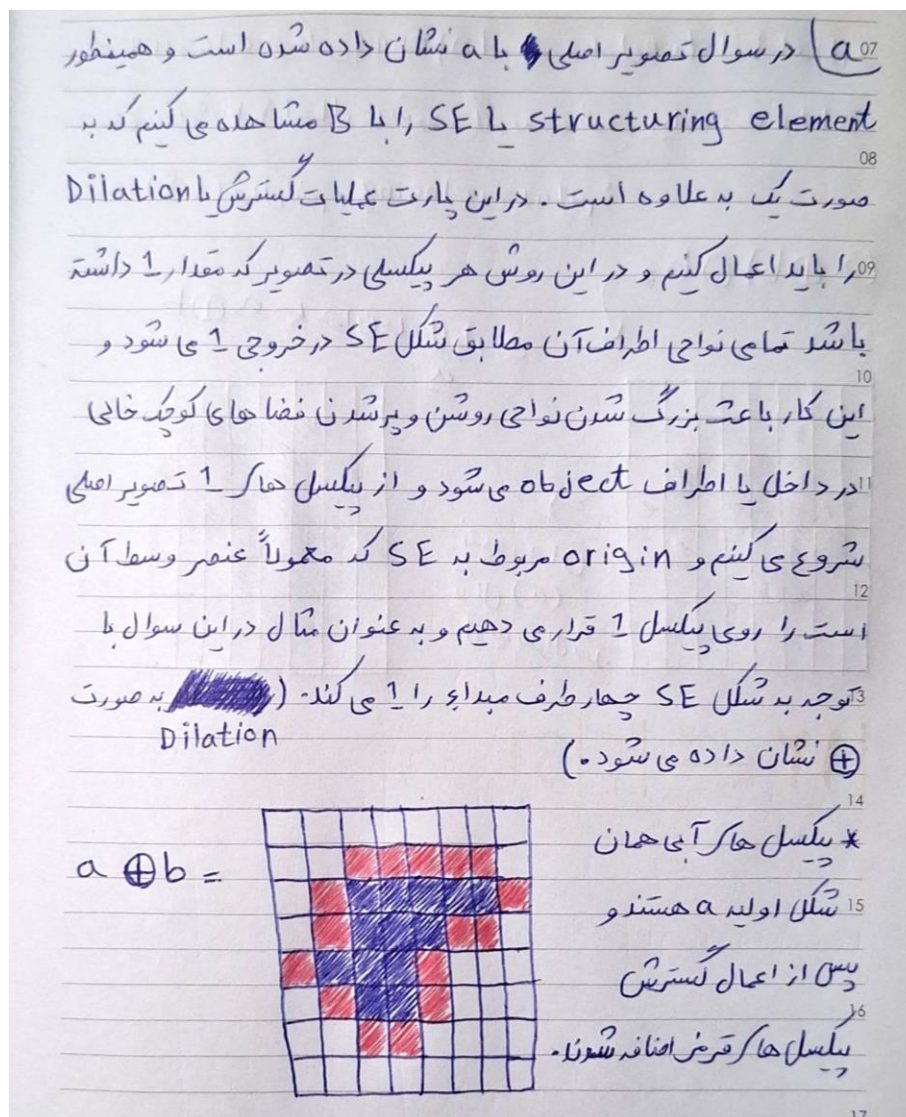 a) در سوال تصویر اصلی با a نشان داده شده است و همینطور
structuring element یا SE را با B مشاهده می کنیم که به
صورت یک به علاوه است. در این پارت عملیات گسترش یا Dilation
را باید اعمال کنیم و در این روش هر پیکسلی در تصویر که مقدار 1 داشته
باشد تمامی نواحی اطراف آن مطابق شکل SE در خروجی 1 می شود و
این کار باعث بزرگ شدن نواحی روشن و پر شدن فضا های کوچک خالی
در داخل یا اطراف object می شود و از پیکسل های 1 تصویر اصلی
شروع می کنیم و origin مربوط به SE که معمولاً عنصر وسط آن
است را روی پیکسل 1 قرار می دهیم و به عنوان مثال در این سوال با
توجه به شکل SE چهار طرف مبداء را 1 می کند. (Dilation به صورت
⊕ نشان داده می شود.)
* پیکسل های آبی همان
شکل اولیه a هستند و
پس از اعمال گسترش
پیکسل های قرمز اضافه شدند.
a ⊕ b =
07
08
09
10
11
12
13
14
15
16
17